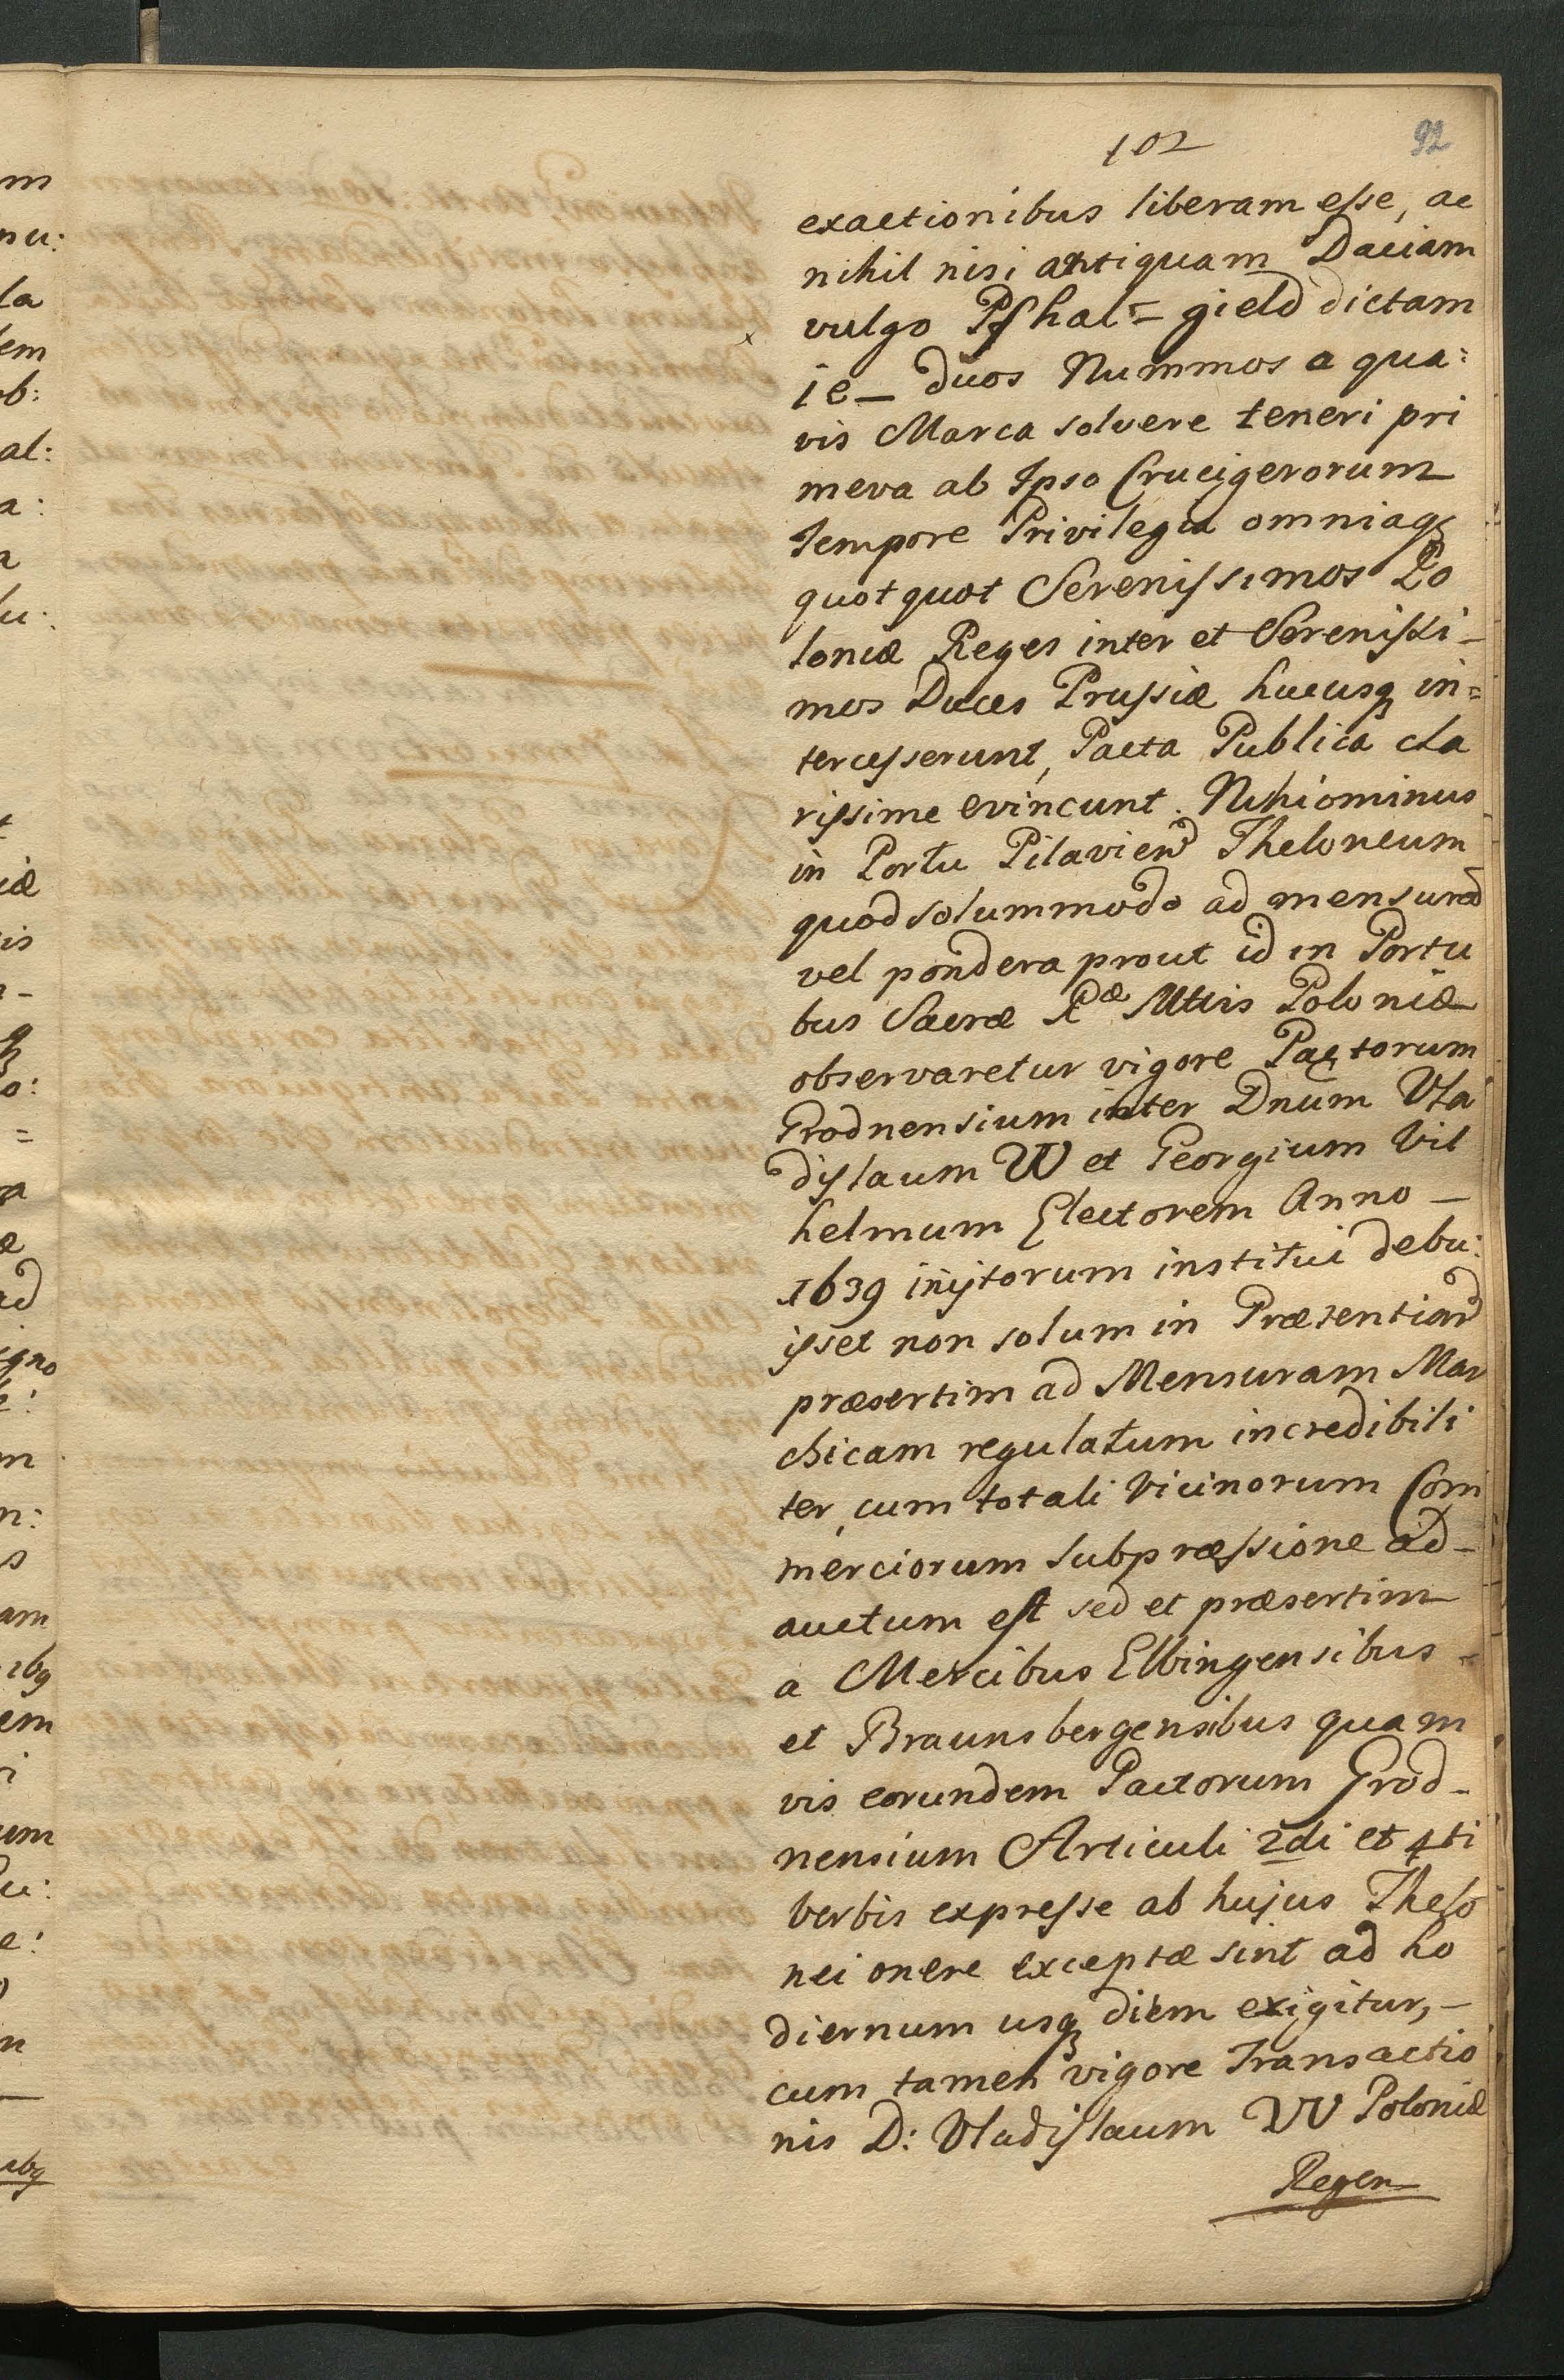 102
92
exactionibus liberam esse, ac
nihil nisi antiquam Daciam
vulgo Pfhal = gield dictam
ie_ duos Nummos a qua:
vis Marca solvere teneri pri
meva ab Ipso Crucigerorum
tempore Privilegia omniaq
quotquot Serenissimos Po
loniæ Reges inter et Serenissi_
mos Duces Prussiæ hucusq in=
tercesserunt, Pacta Publica cla
rissime evincunt. Nihiominus
in Portu Pilavien Theloneum
quod solummodo ad mensurã
vel pondera prout id in Portu
bus Sacræ Rae Mttis Poloniæ
observaretur vigore Pactorum
Grodnensium inter Dnum Vla
dislaum IV et Georgium Vil
helmum Electorem Anno _
1639 inijtorum institui debu:
isset non solum in Præsentiarũ
præsertim ad Mensuram Mar
chicam regulatum incredibili
ter, cum totali Vicinorum Com
merciorum subpræssione ad_
auctum est sed et præsertim
a Mercibus Elbingensibus
et Braunsbergensibus quam
vis eorundem Pactorum Grod_
nensium Articuli 2di et 4ti
verbis expresse ab hujus Thelo
nei onere exceptæ sint ad ho
diernum usq diem exigitur, _
cum tamen vigore Transactio
nis D: Vladislaum IV Poloniæ
Regem